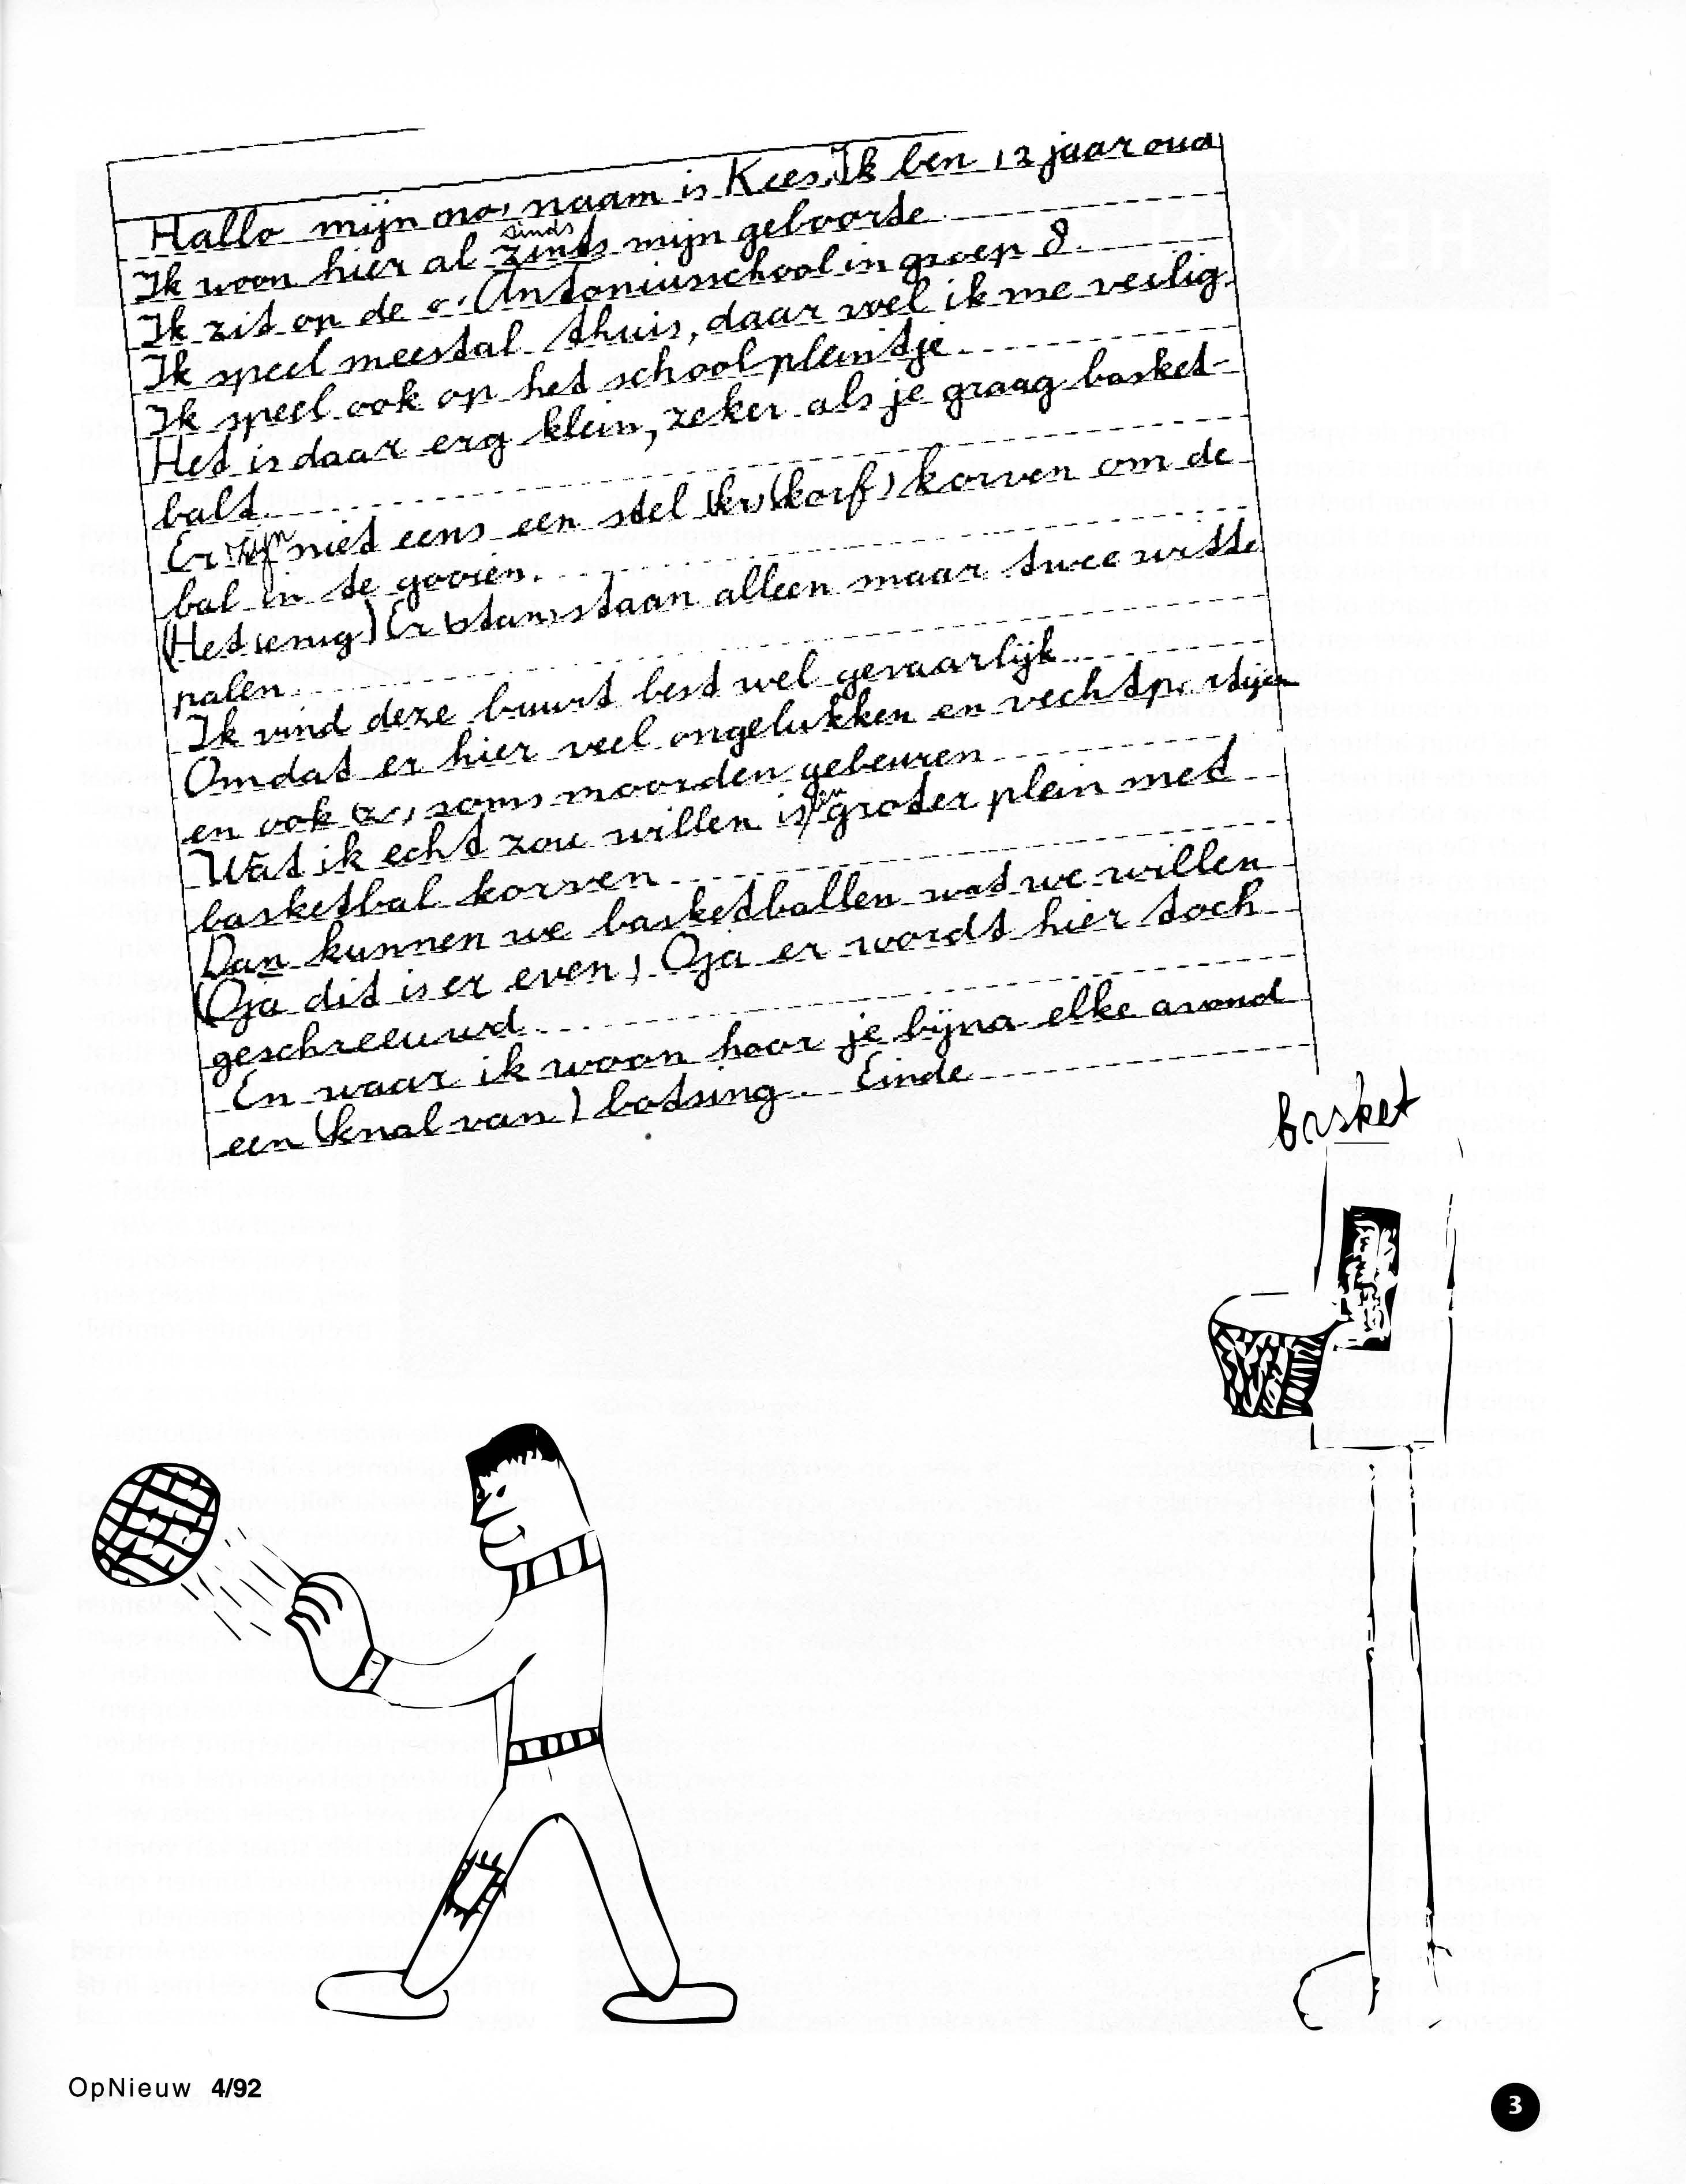 Hallo mijn na, naam is Kees. Ik ben 12 jaar oud
Ik woon hier al zinds sinds mijn geboorte
Ik zit op de Antoniusschool in groep 8.
Ik speel meestal thuis, daar voel ik me veilig.
Ik speel ook op het schoolpleintje.
Het is daar erg klein, zeker als je graag basket-
balt.
Er zijn niet eens een stel (kr) (korf) korven om de
bal in te gooien.
(Het enug) Er (stan) staan alleen maar twee witte
palen.
Ik vind deze buurt best wel gevaarlijk.
Omdat er hier veel ongelukken en vechtpartijen
en ook soms moorden gebeuren
Wat ik echt zou willen is een groter plein met
basketbal korven.
Dan kunnen we basketballen wat we willen
(Oja dit is er even) Oja er wordt hier toch
geschreeuwd.
En waar ik woon hoor je bijna elke avond
een (knal van) botsing. Einde
basket
OpNieuw 4/92
3